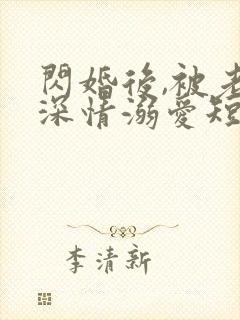 閃婚後,被老
深情溺愛短
李清新